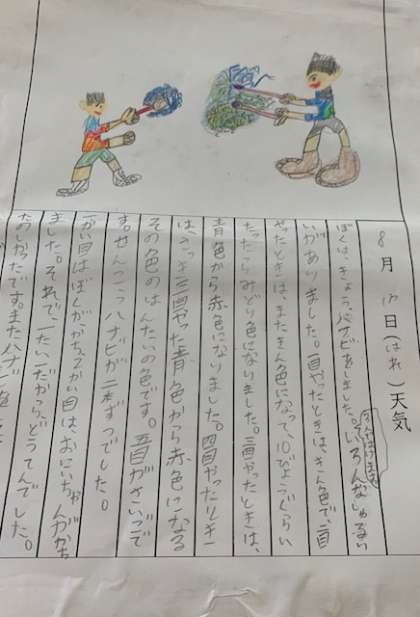 8月 日(はれ)天気
ぼくは、きょう、ハナビをしました。いろんなしゅるい
がありました。一回やったときは、きん色で、二回
やったときは、またきん色になって、10びょうぐらい
たったらみどり色になりました。三回やったときは、
青色から赤色になりました。四回やったときは
は、さっき三回やった青色から赤色になる
その色のはんたいの色です。五回がさいごで
すせんこうハナビが二本ずつでした。
一かい目はぼくが、かち、2かい目は、おにいちゃんがかち
ました。それで、一たい一だから、どうてんでした。
たのしかったです。またハナビを